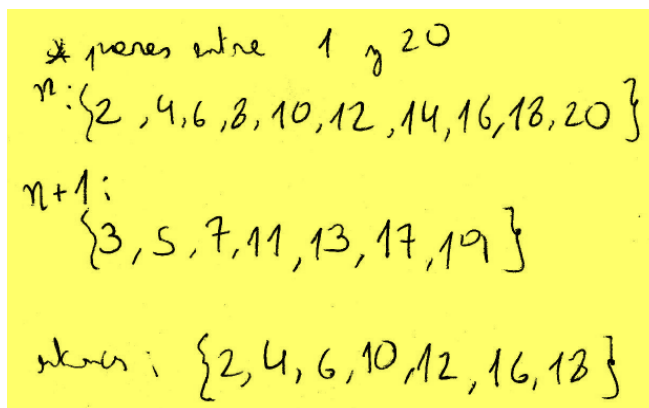 * pares entre 1 y 20
n: {2, 4, 6, 8, 10, 12, 14, 16, 18, 20}
n+1:
{3, 5, 7, 11, 13, 17, 19}
entonces: {2, 4, 6, 10, 12, 16, 18}